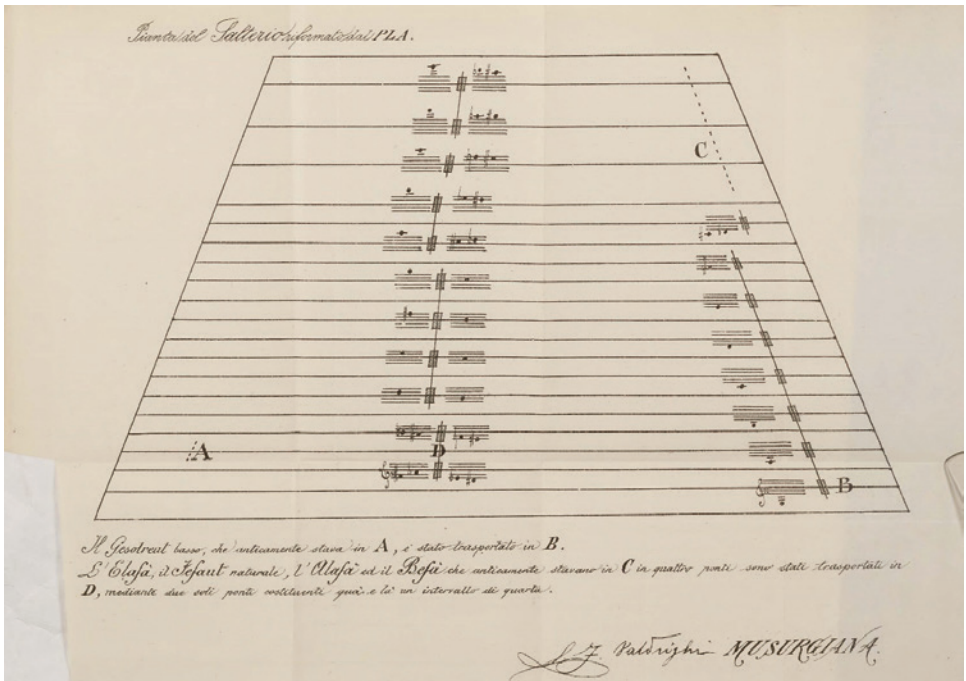 Pianta del Salterio riformato dal PLA.
C
A
D
B
Il Gesolreut basso, che anticamente stava in A, è stato trasportato in B.
L'Elafà, il Fefaut naturale, l'Alafà ed il Befà che anticamente stavano in C in quattro ponti sono stati trasportati in
D, mediante due soli ponti costituenti quà e là un intervallo di quarta.
Valdrighi MUSURGIANA.